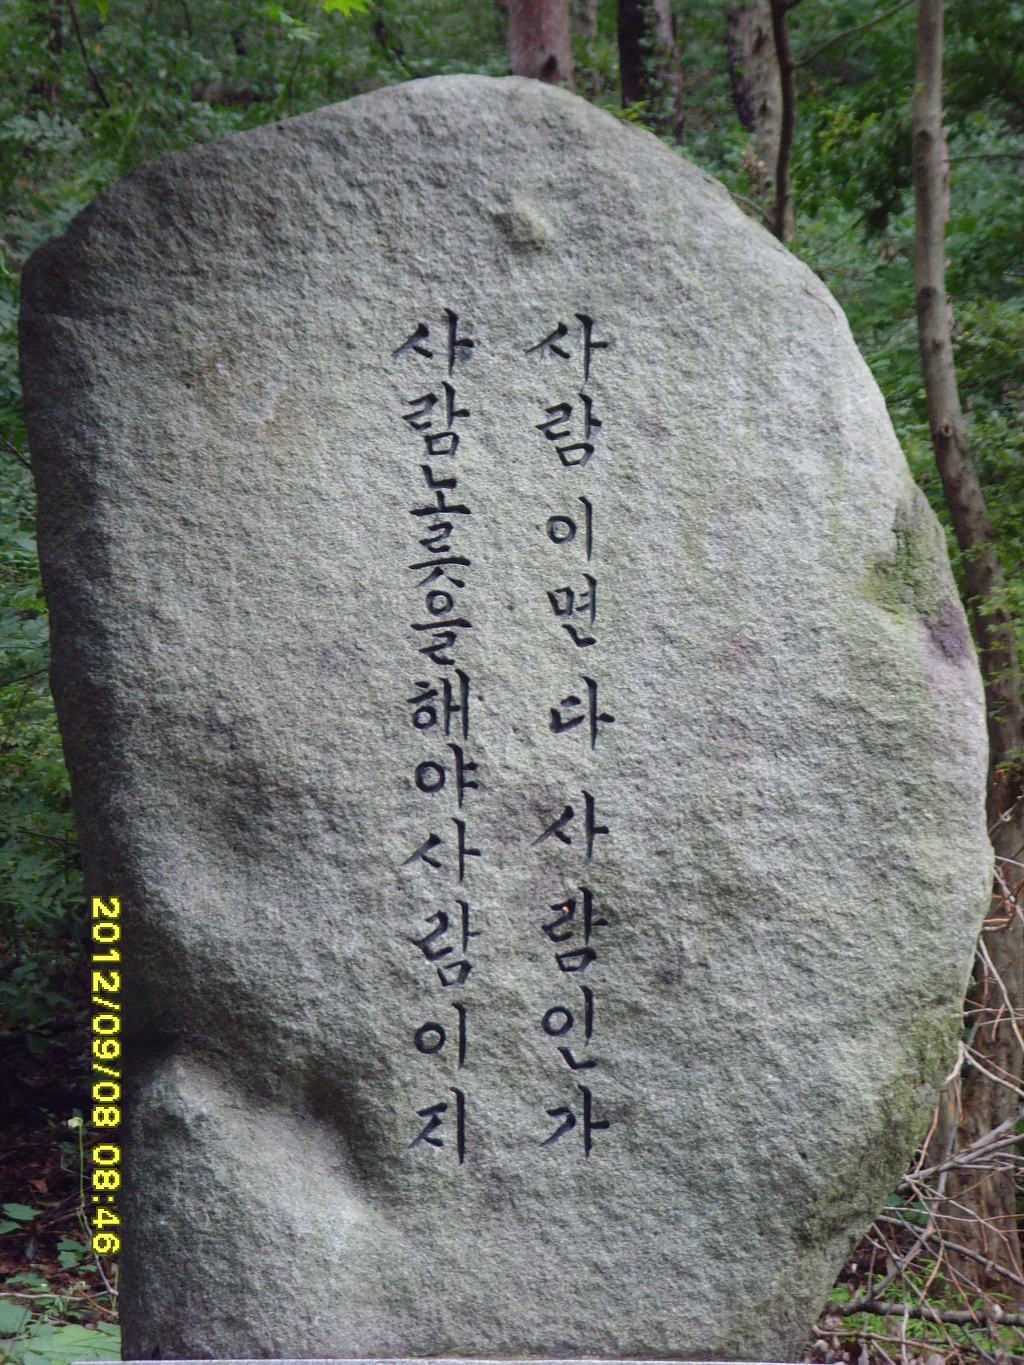 사람 이면 다 사람인가
사람노릇을해야사람이지
2012/09/08 08:46